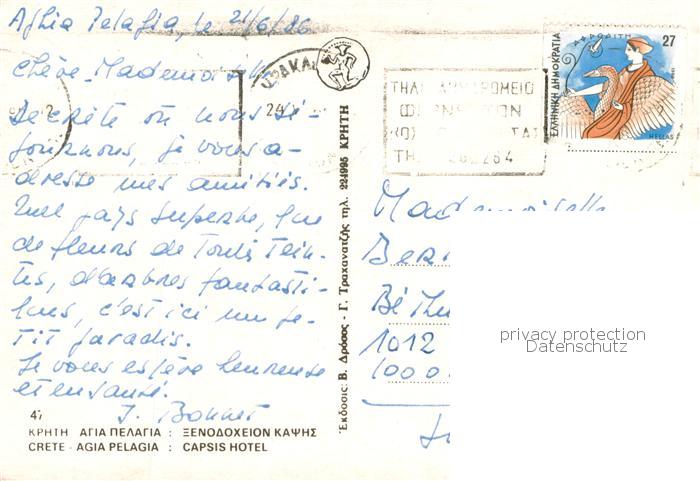 Aghia Pelagia, le 21/6/86
Chère Mademoiselle
De Crète où nous sé-
journons, je vous a-
dresse mes amitiés.
Quel pays superbe, que
de fleurs de toutes tein-
tes, d'arbres fantasti-
ques, c'est ici un pe-
tit paradis.
Je vous espère heureuse
et en santé.
J. Bonnet
47
ΚΡΗΤΗ ΑΓΙΑ ΠΕΛΑΓΙΑ : ΞΕΝΟΔΟΧΕΙΟΝ ΚΑΨΗΣ
CRETE - AGIA PELAGIA : CAPSIS HOTEL
Ἐκδοσις: Β. Δρόσος - Γ. Τραχανατζῆς τηλ. 224995 ΚΡΗΤΗ
24
ΤΗΛ
ΤΗ 264
ΑΦΡΟΔΙΤΗ
27
ΕΛΛΗΝΙΚΗ ΔΗΜΟΚΡΑΤΙΑ
HELLAS
Mademoiselle
Ber
Béthu
1012
1000
privacy protection
Datenschutz